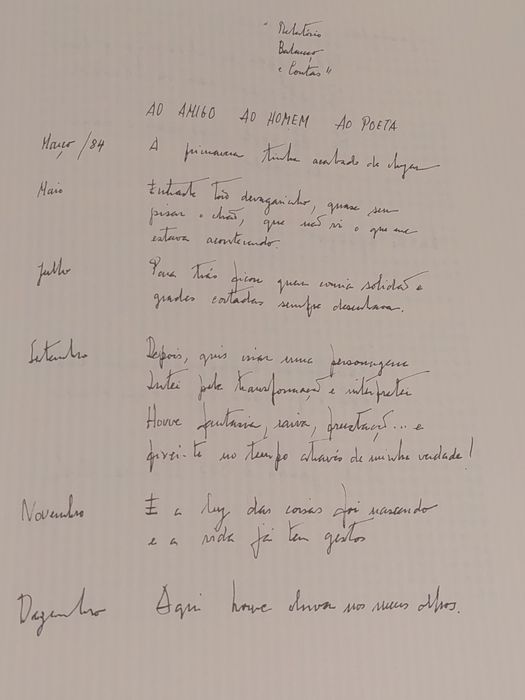 "Relatório
Balanço
e Contas"
AO AMIGO AO HOMEM AO POETA
Março/84 A primavera tinha acabado de chegar
Maio Entraste tão devagarinho, quase sem
pisar o chão, que não vi o que me
estava acontecendo.
Julho Para trás ficou quem comia solidão e
grades cortadas sempre desenhava.
Setembro Depois, quis criar uma personagem
Lutei pela transformação e interpretei
Houve fantasia, raiva, frustração... e
fixei-te no tempo através de minha verdade!
Novembro E a luz das coisas foi nascendo
e a vida já tem gestos
Dezembro Aqui houve chuva nos meus olhos.